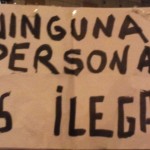 NINGUNA
PERSONA
ES İLEGAL